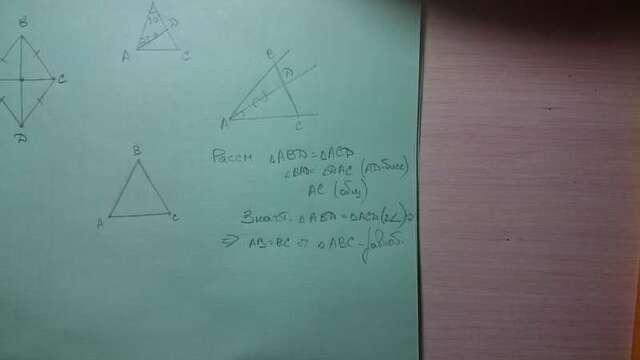 B
C
D
A
D
C
B
D
A
C
B
A
C
Рассм △ABD = △ACD
∠BAD = ∠DAC (AD-бисс)
AC (общ)
Значит. △ABD = △ACD
⇒ AB = BC ⇒ △ABC - равноб.